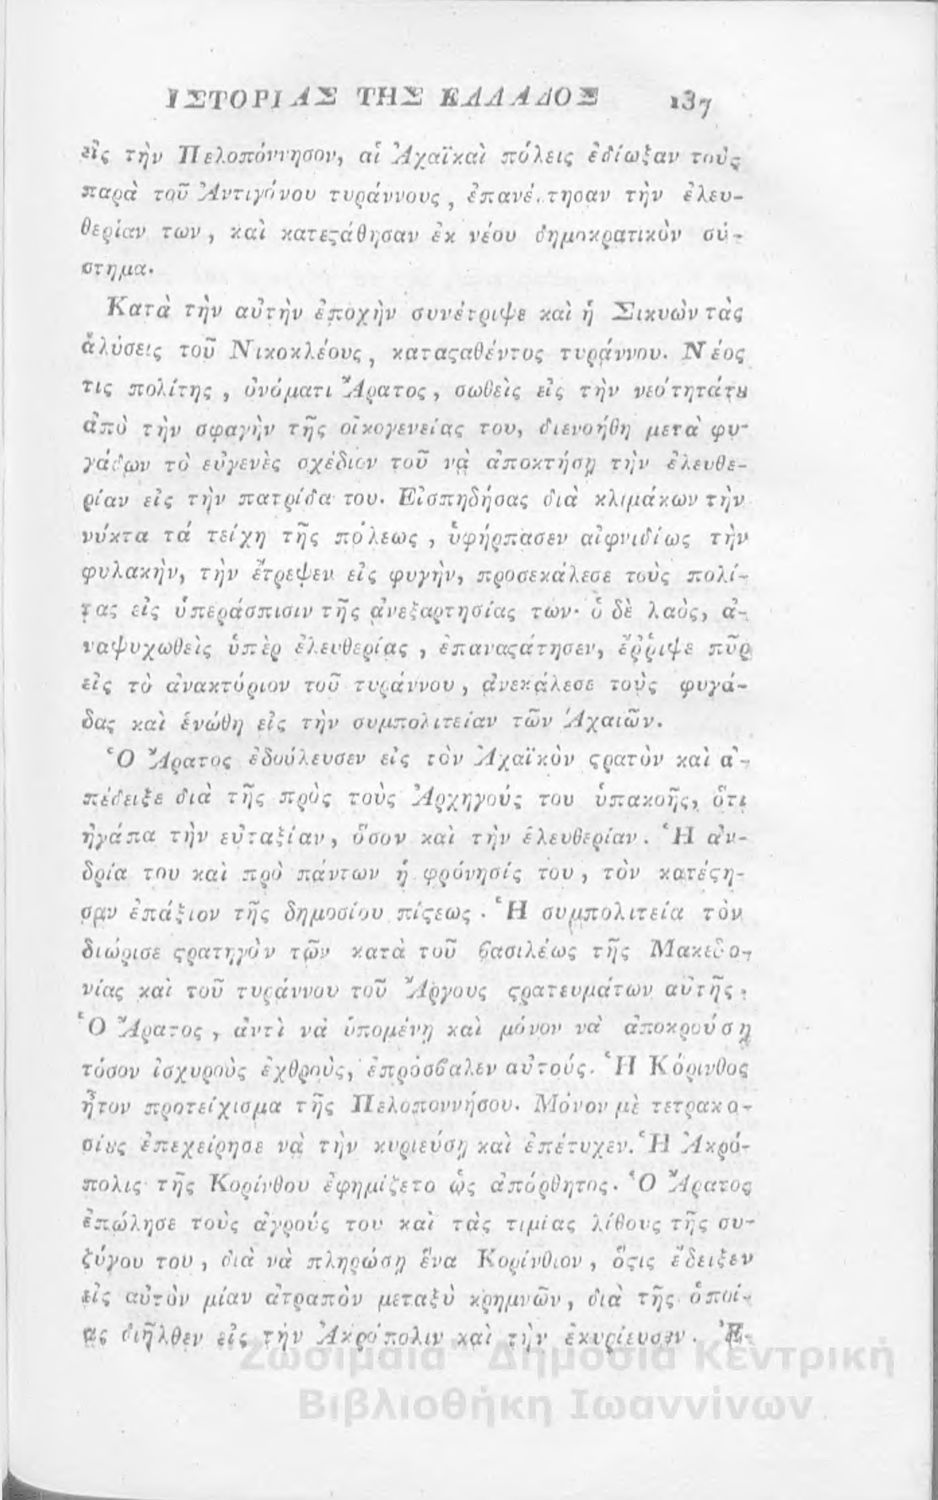 ΙΣΤΟΡΙΑΣ ΤΗΣ ΕΛΛΑΔΟΣ 137
εἰς τὴν Πελοπόννησον, αἱ Ἀχαϊκαὶ πόλεις ἐδίωξαν τοὺς
παρὰ τοῦ Ἀντιγόνου τυράννους, ἐπανέστησαν τὴν ἐλευ-
θερίαν των, καὶ κατεϛάθησαν ἐκ νέου δημοκρατικὸν σύ-
στημα.
Κατὰ τὴν αὐτὴν ἐποχὴν συνέτριψε καὶ ἡ Σικυὼν τὰς
ἁλύσεις τοῦ Νικοκλέους, καταϛαθέντος τυράννου. Νέος
τις πολίτης, ὀνόματι Ἄρατος, σωθεὶς εἰς τὴν νεότητάτȣ
ἀπὸ τὴν σφαγὴν τῆς οἰκογενείας του, διενοήθη μετὰ φυ-
γάδων τὸ εὐγενὲς σχέδιον τοῦ νὰ ἀποκτήσῃ τὴν ἐλευθε-
ρίαν εἰς τὴν πατρίδα του. Εἰσπηδήσας διὰ κλιμάκων τὴν
νύκτα τὰ τείχη τῆς πόλεως, ὑφήρπασεν αἰφνιδίως τὴν
φυλακὴν, τὴν ἔτρεψεν εἰς φυγὴν, προσεκάλεσε τοὺς πολί-
τας εἰς ὑπεράσπισιν τῆς ἀνεξαρτησίας των· ὁ δὲ λαὸς, ἀ-
ναψυχωθεὶς ὑπὲρ ἐλευθερίας, ἐπαναϛάτησεν, ἔῤῥιψε πῦρ
εἰς τὸ ἀνακτόριον τοῦ τυράννου, ἀνεκάλεσε τοὺς φυγά-
δας καὶ ἑνώθη εἰς τὴν συμπολιτείαν τῶν Ἀχαιῶν.
Ὁ Ἄρατος ἐδούλευσεν εἰς τὸν Ἀχαϊκὸν ϛρατὸν καὶ ἀ-
πέδειξε διὰ τῆς πρὸς τοὺς Ἀρχηγούς του ὑπακοῆς, ὅτι
ἠγάπα τὴν εὐταξίαν, ὅσον καὶ τὴν ἐλευθερίαν. Ἡ ἀν-
δρία του καὶ πρὸ πάντων ἡ φρόνησίς του, τὸν κατέϛη-
σαν ἐπάξιον τῆς δημοσίου πίϛεως. Ἡ συμπολιτεία τὸν
διώρισε ϛρατηγὸν τῶν κατὰ τοῦ βασιλέως τῆς Μακεδο-
νίας καὶ τοῦ τυράννου τοῦ Ἄργους ϛρατευμάτων αὐτῆς.
Ὁ Ἄρατος, ἀντὶ νὰ ὑπομένῃ καὶ μόνον νὰ ἀποκρούσῃ
τόσον ἰσχυροὺς ἐχθροὺς, ἐπρόσβαλεν αὐτούς. Ἡ Κόρινθος
ἦτον προτείχισμα τῆς Πελοποννήσου. Μόνον μὲ τετρακο-
σίȣς ἐπεχείρησε νὰ τὴν κυριεύσῃ καὶ ἐπέτυχεν. Ἡ Ἀκρό-
πολις τῆς Κορίνθου ἐφημίζετο ὡς ἀπόρθητος. Ὁ Ἄρατος
ἐπώλησε τοὺς ἀγρούς του καὶ τὰς τιμίας λίθους τῆς συ-
ζύγου του, διὰ νὰ πληρώσῃ ἕνα Κορίνθιον, ὅϛις ἔδειξεν
εἰς αὐτὸν μίαν ἀτραπὸν μεταξὺ κρημνῶν, διὰ τῆς ὁποί-
ας διῆλθεν εἰς τὴν Ἀκρόπολιν καὶ τὴν ἐκυρίευσεν. Ἐ-
Ζωσιμαία Δημόσια Κεντρική
Βιβλιοθήκη Ιωαννίνων